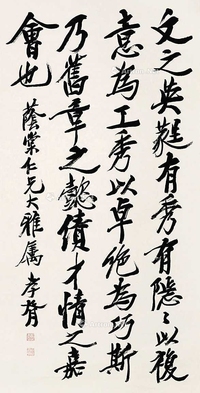 文之英蕤有秀有隱隱以複
意為工秀以卓絕為巧斯
乃舊章之懿績才情之嘉
會也
蔭棠仁兄大雅属 孝胥